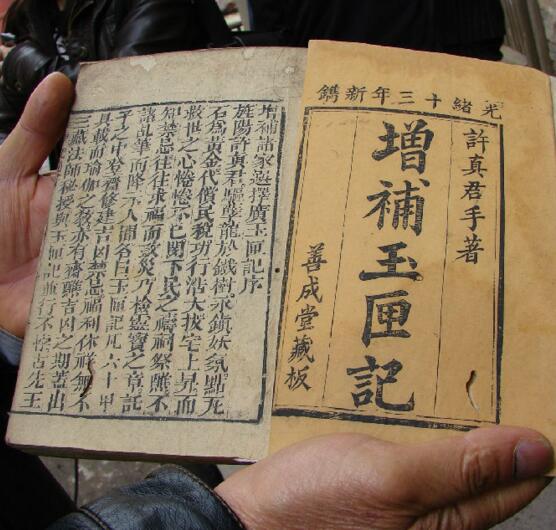 光緒十三年新鐫
許真君手著
增補玉匣記
善成堂藏板
增補諸家選擇廣玉匣記序
旌陽許真君驅孽龍於鐵樹永鎮妖氛點瓦
石為黃金代償民稅功行浩大拔宅上昇而
救世之心惓惓不已閔下民之禱祠祭醮不
知禁忌往往求福而致災乃檢靈寶之章託
諸乩筆而降示人間名曰玉匣記凡六十甲
子之中發齋修建吉凶禁忌福利休祥無不
具載而瑜伽之教亦有齋醮吉凶之期蓋出
三藏法師秘授與玉匣記並行不悖古先王